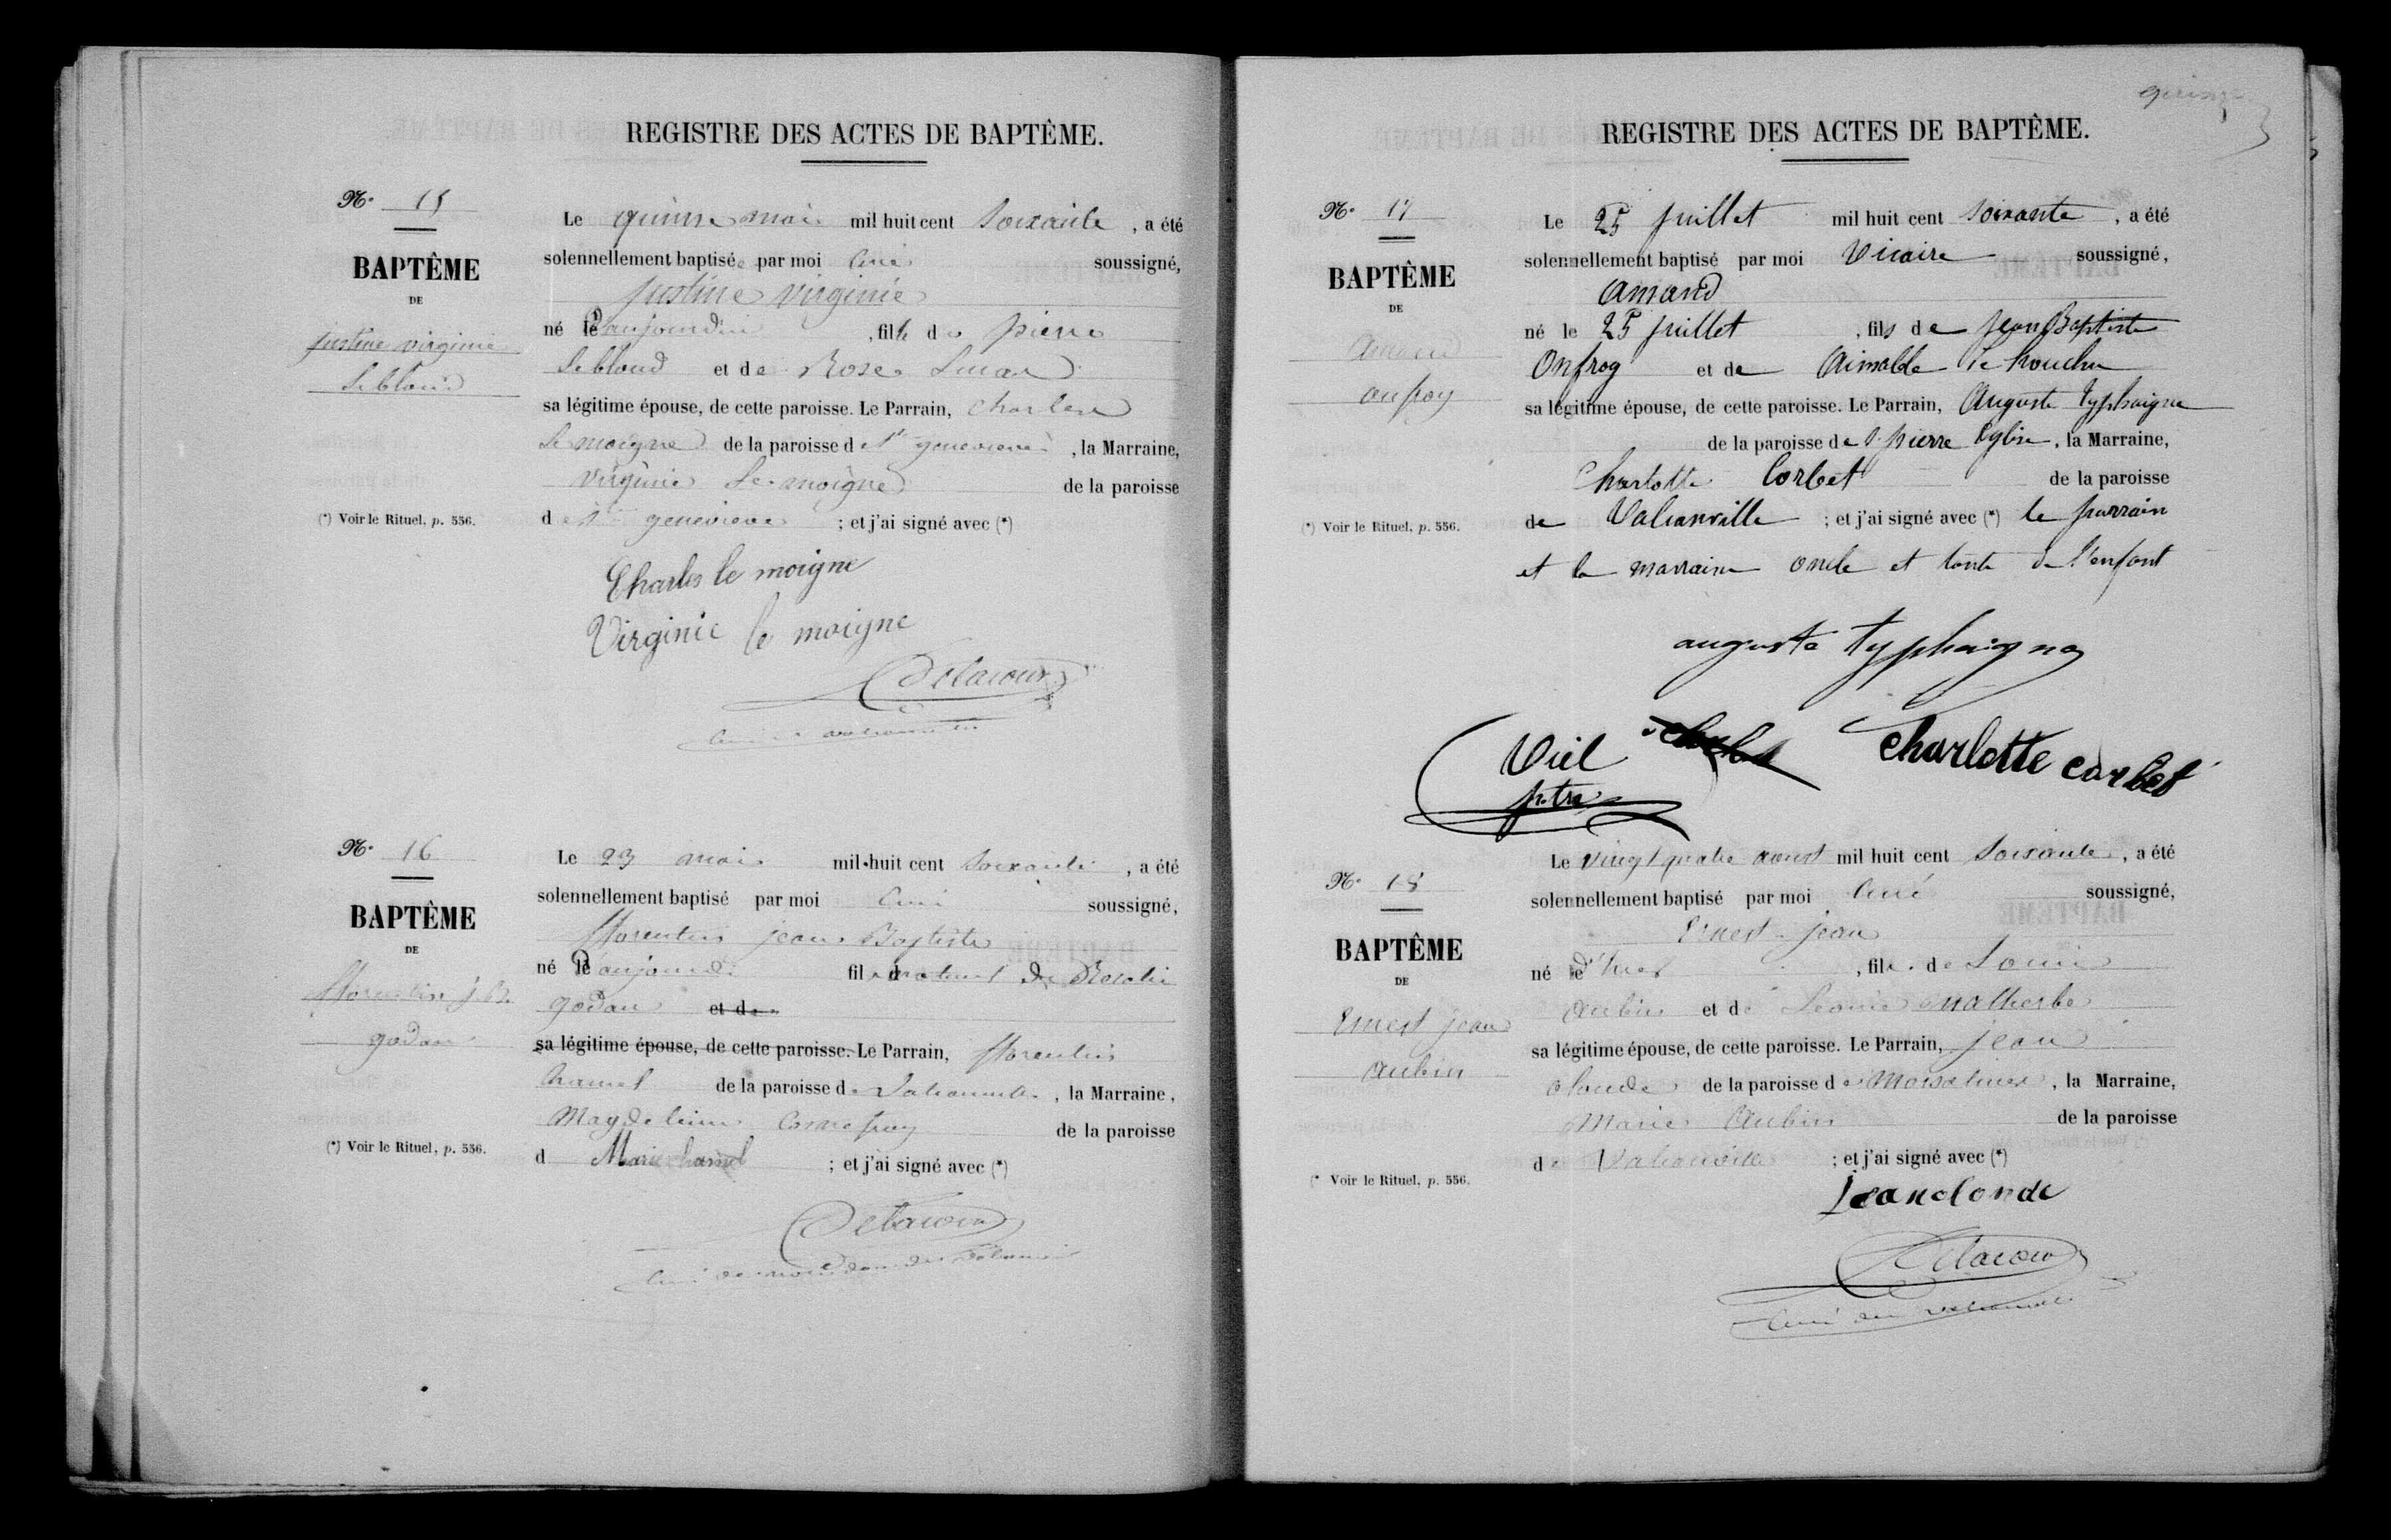 REGISTRE DES ACTES DE BAPTÊME.
No. 15
BAPTÊME
DE
justine virginie
Leblond
(*) Voir le Rituel, p. 556.
Le quinze mai mil huit cent Soixante, a été
solennellement baptisée par moi Curé soussigné,
justine virginie
né le D'aujourdhui, fille de pierre
Leblond et de Rose
sa légitime épouse, de cette paroisse. Le Parrain, Charles
Le moigne de la paroisse de Ste genevieve, la Marraine,
virginie Le moigne de la paroisse
de Ste genevieve ; et j'ai signé avec (*)
Charles le moigne
Virginie le moigne
Delacour
No. 16
BAPTÊME
DE
fflorentin j. B.
godan
(*) Voir le Rituel, p. 556.
Le 23 mai mil huit cent Soixante, a été
solennellement baptisé par moi Curé soussigné,
fflorentin jean Baptiste
né le D'aujourdhui fils naturel de
godan et de
sa légitime épouse, de cette paroisse. Le Parrain, fflorentin
hamel de la paroisse de Valcanville, la Marraine,
Magdeleine
de la paroisse
d Marie hamel ; et j'ai signé avec (*)
Delacour
quinze
REGISTRE DES ACTES DE BAPTÊME.
No. 17
BAPTÊME
DE
Amand
onfroy
(*) Voir le Rituel, p. 556.
Le 25 juillet mil huit cent soixante, a été
solennellement baptisé par moi Vicaire soussigné,
Amand
né le 25 juillet, fils de Jean Baptiste
Onfroy et de Aimable
sa légitime épouse, de cette paroisse. Le Parrain, Auguste Typhaigne
de la paroisse de S. pierre Eglise, la Marraine,
Charlotte Corbet de la paroisse
de Valcanville ; et j'ai signé avec (*) le parrain
et la marraine oncle et tante de l'enfant
auguste typhaigne
Viel
ptre
charlotte corbet
No. 18
BAPTÊME
DE
Ernest jean
aubin
(* Voir le Rituel, p. 556.
Le vingt quatre aoust mil huit cent Soixante, a été
solennellement baptisé par moi Curé soussigné,
Ernest jean
né le d'hier, fils de Louis
aubin et de Leonie malherbe
sa légitime épouse, de cette paroisse. Le Parrain, jean
olonde de la paroisse de Morsalines, la Marraine,
Marie Aubin de la paroisse
de Valcanville ; et j'ai signé avec (*)
Jean olonde
Delacour
Curé de Valcanville